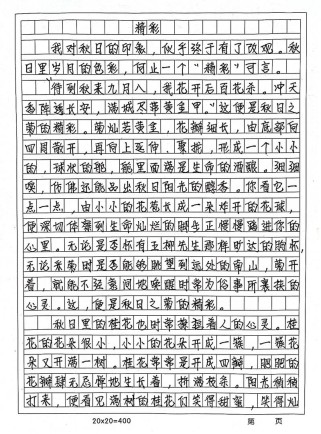 精彩
我对秋日的印象,似乎终于有了改观。秋
日里岁月的色彩,何止一个“精彩”可言。
待到秋来九月八,我花开后百花杀。冲天
香阵透长安,满城尽带黄金甲。”这便是秋日之
菊的精彩。菊灿若黄金,花瓣细长,由底部向
四周散开,再向上延伸、聚拢,形成一个小小
的,球状的 里面满是生命的酒酿。细细
嗅,仿佛还能品出秋日阳光的醇香。你看它一
点一点,由小小的花苞长成一朵炸开的花球,
便深切体察到生命灿烂的脚步正慢慢踏进你的
心里。无论是否怀有五柳先生那样旷达的胸怀,
无论采菊时是否能够眺望到远处的南山,菊开
着,就能不经意间地唤醒时常为俗事所裹挟的
心灵。这,便是秋日之菊的精彩。
秋日里的桂花也时常撩拨着人的心灵。桂
花的花朵很小,小小的花朵开成一簇,一簇花
朵又开满一树。桂花常常是开成四瓣,肥肥的
花瓣肆无忌惮地生长着,挤满枝条。阳光倘倘
打来,便看见满树的桂花们笑得甜蜜,笑得灿
20×20=400 第 页